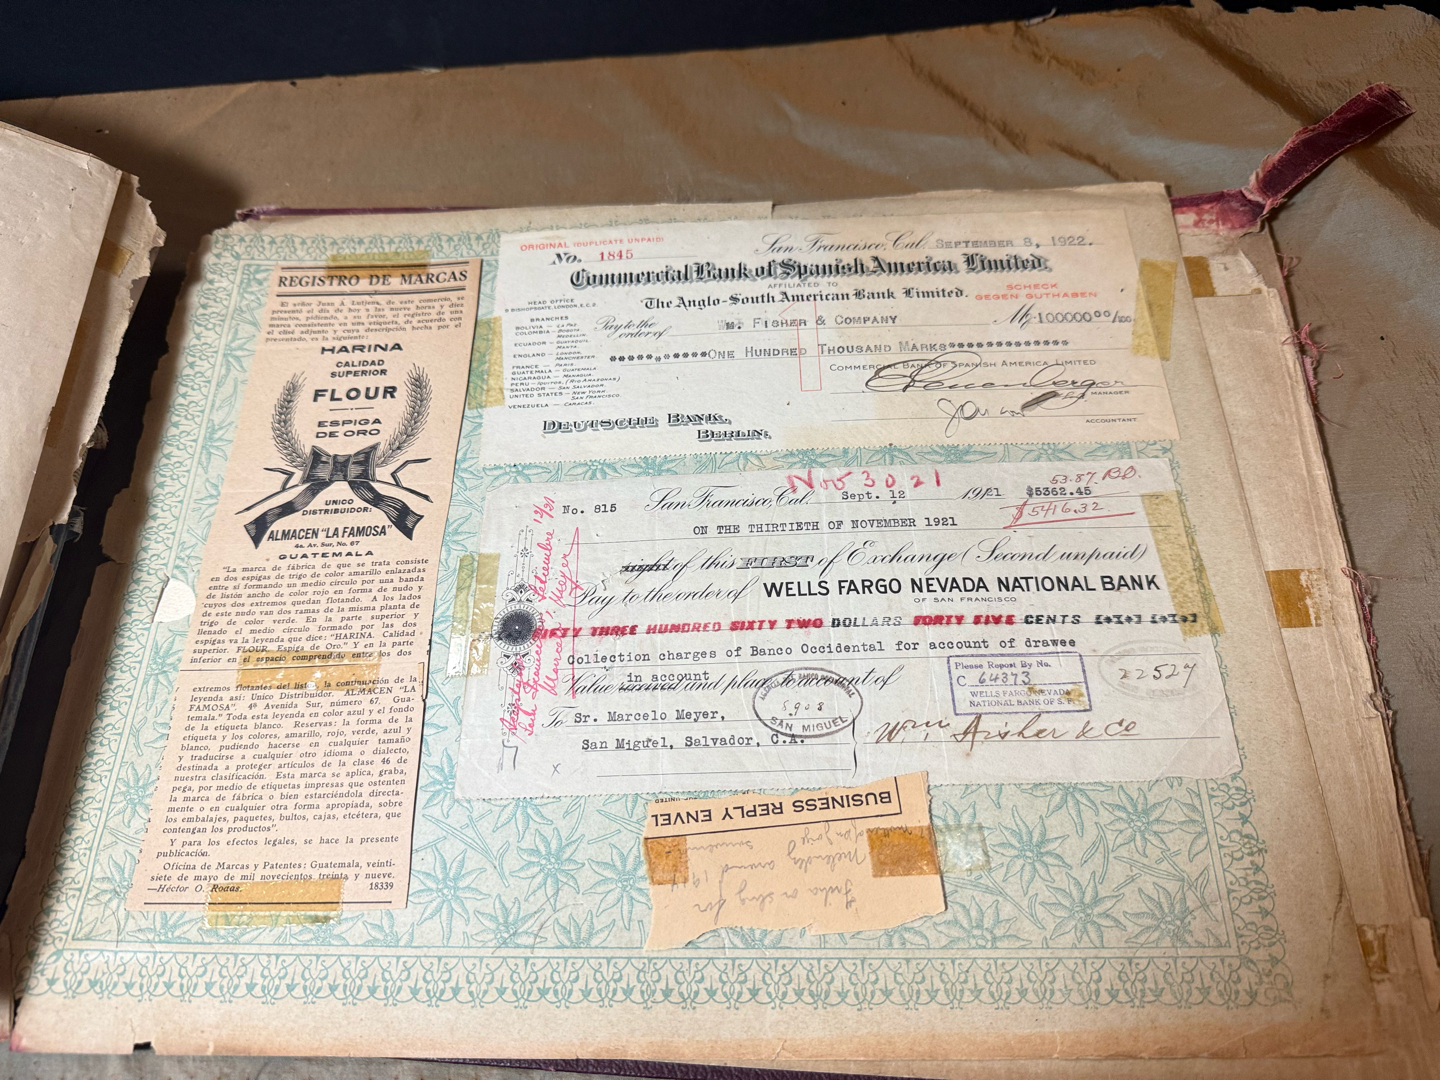 REGISTRO DE MARCAS
El señor Juan A. Lutjens, de este comercio, se
presentó el día de hoy a las nueve horas y diez
minutos, pidiendo, a su favor, el registro de una
marca consistente en una etiqueta, de acuerdo con
el clisé adjunto y cuya descripción hecha por el
presentado, es la siguiente:
HARINA
CALIDAD
SUPERIOR
FLOUR
ESPIGA
DE ORO
UNICO
DISTRIBUIDOR:
ALMACEN "LA FAMOSA"
4a. Av. Sur, No. 67
GUATEMALA
"La marca de fábrica de que se trata consiste
en dos espigas de trigo de color amarillo enlazadas
entre sí formando un medio círculo por una banda
de listón ancho de color rojo en forma de nudo y
cuyos dos extremos quedan flotando. A los lados
de este nudo van dos ramas de la misma planta de
trigo de color verde. En la parte superior y
llenado el medio círculo formado por las dos
espigas va la leyenda que dice: "HARINA. Calidad
superior. FLOUR Espiga de Oro." Y en la parte
inferior en el espacio comprendido entre los dos
extremos flotantes del listón la continuación de la
leyenda así: Unico Distribuidor. ALMACEN "LA
FAMOSA", 4ª Avenida Sur, número 67, Gua-
temala." Toda esta leyenda en color azul y el fondo
de la etiqueta blanco. Reservas: la forma de la
etiqueta y los colores, amarillo, rojo, verde, azul y
blanco, pudiendo hacerse en cualquier tamaño
y traducirse a cualquier otro idioma o dialecto,
destinada a proteger artículos de la clase 46 de
nuestra clasificación. Esta marca se aplica, graba,
pega, por medio de etiquetas impresas que ostenten
la marca de fábrica o bien estarciéndola directa-
mente o en cualquier otra forma apropiada, sobre
los embalajes, paquetes, bultos, cajas, etcétera, que
contengan los productos".
Y para los efectos legales, se hace la presente
publicación.
Oficina de Marcas y Patentes: Guatemala, veinti-
siete de mayo de mil novecientos treinta y nueve.
—Héctor O. Rodas. 18339
ORIGINAL (DUPLICATE UNPAID)
No. 1845
San Francisco, Cal. SEPTEMBER 8, 1922.
Commercial Bank of Spanish America Limited.
AFFILIATED TO
The Anglo-South American Bank Limited.
SCHECK
GEGEN GUTHABEN
HEAD OFFICE
9 BISHOPSGATE, LONDON, E.C.2
BRANCHES
BOLIVIA - LA PAZ
COLOMBIA - BOGOTA
MEDELLIN.
ECUADOR - GUAYAQUIL
MANTA
ENGLAND - LONDON,
MANCHESTER
FRANCE - PARIS
GUATEMALA - GUATEMALA
NICARAGUA - MANAGUA
PERU - IQUITOS, (RIO AMAZONAS)
SALVADOR - SAN SALVADOR.
UNITED STATES - NEW YORK,
SAN FRANCISCO.
VENEZUELA - CARACAS.
Pay to the
order of WM. FISHER & COMPANY M 100000 00/100
ONE HUNDRED THOUSAND MARKS
COMMERCIAL BANK OF SPANISH AMERICA LIMITED
MANAGER
ACCOUNTANT
DEUTSCHE BANK,
BERLIN.
Nov 30 21
53.87 BO.
No. 815 San Francisco, Cal. Sept. 12 1921 $5362.45
$5416.32
ON THE THIRTIETH OF NOVEMBER 1921
sight of this FIRST of Exchange (Second unpaid)
Pay to the order of WELLS FARGO NEVADA NATIONAL BANK
OF SAN FRANCISCO
FIFTY THREE HUNDRED SIXTY TWO DOLLARS FORTY FIVE CENTS
Collection charges of Banco Occidental for account of drawee
in account
Value received and place to account of
Please Report By No.
C 64373
WELLS FARGO NEVADA
NATIONAL BANK OF S. F.
22527
To Sr. Marcelo Meyer,
San Miguel, Salvador, C.A.
8908
SAN MIGUEL
Wm Fisher & Co
x
BUSINESS REPLY ENVEL